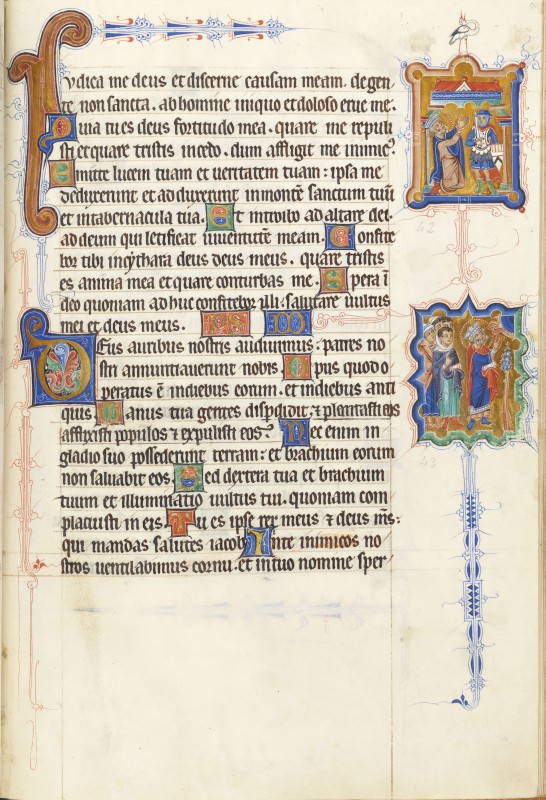 Iudica me deus et discerne causam meam. de gen
te non sancta. ab homine iniquo et doloso erue me.
Quia tu es deus fortitudo mea. quare me repuli
sti et quare tristis incedo. dum affligit me inimic9
Emitte lucem tuam et ueritatem tuam: ipsa me
deduxerunt et adduxerunt in montē sanctum tuū
et in tabernacula tua. Et introibo ad altare dei.
ad deum qui letificat iuuentutē meam. Confite
bor tibi in cythara deus deus meus. quare tristis
es anima mea et quare conturbas me. Spera ī
deo quoniam adhuc confitebor illi: salutare uultus
mei et deus meus.
Deus auribus nostris audiuimus: patres no
stri annuntiauerunt nobis. Opus quod o
peratus ē in diebus eorum. et in diebus anti
quis. Manus tua gentes disp̄didit. ⁊ plantasti eos
afflixisti populos ⁊ expulisti eos. Nec enim in
gladio suo possederunt terram: et brachium eorum
non saluabit eos. Sed dextera tua et brachium
tuum et illuminatio uultus tui. quoniam com
placuisti in eis. Tu es ipse rex meus ⁊ deus m̄s:
qui mandas salutes iacob. Inte inimicos no
stros uentilabimus cornu. et in tuo nomine sper
42
43